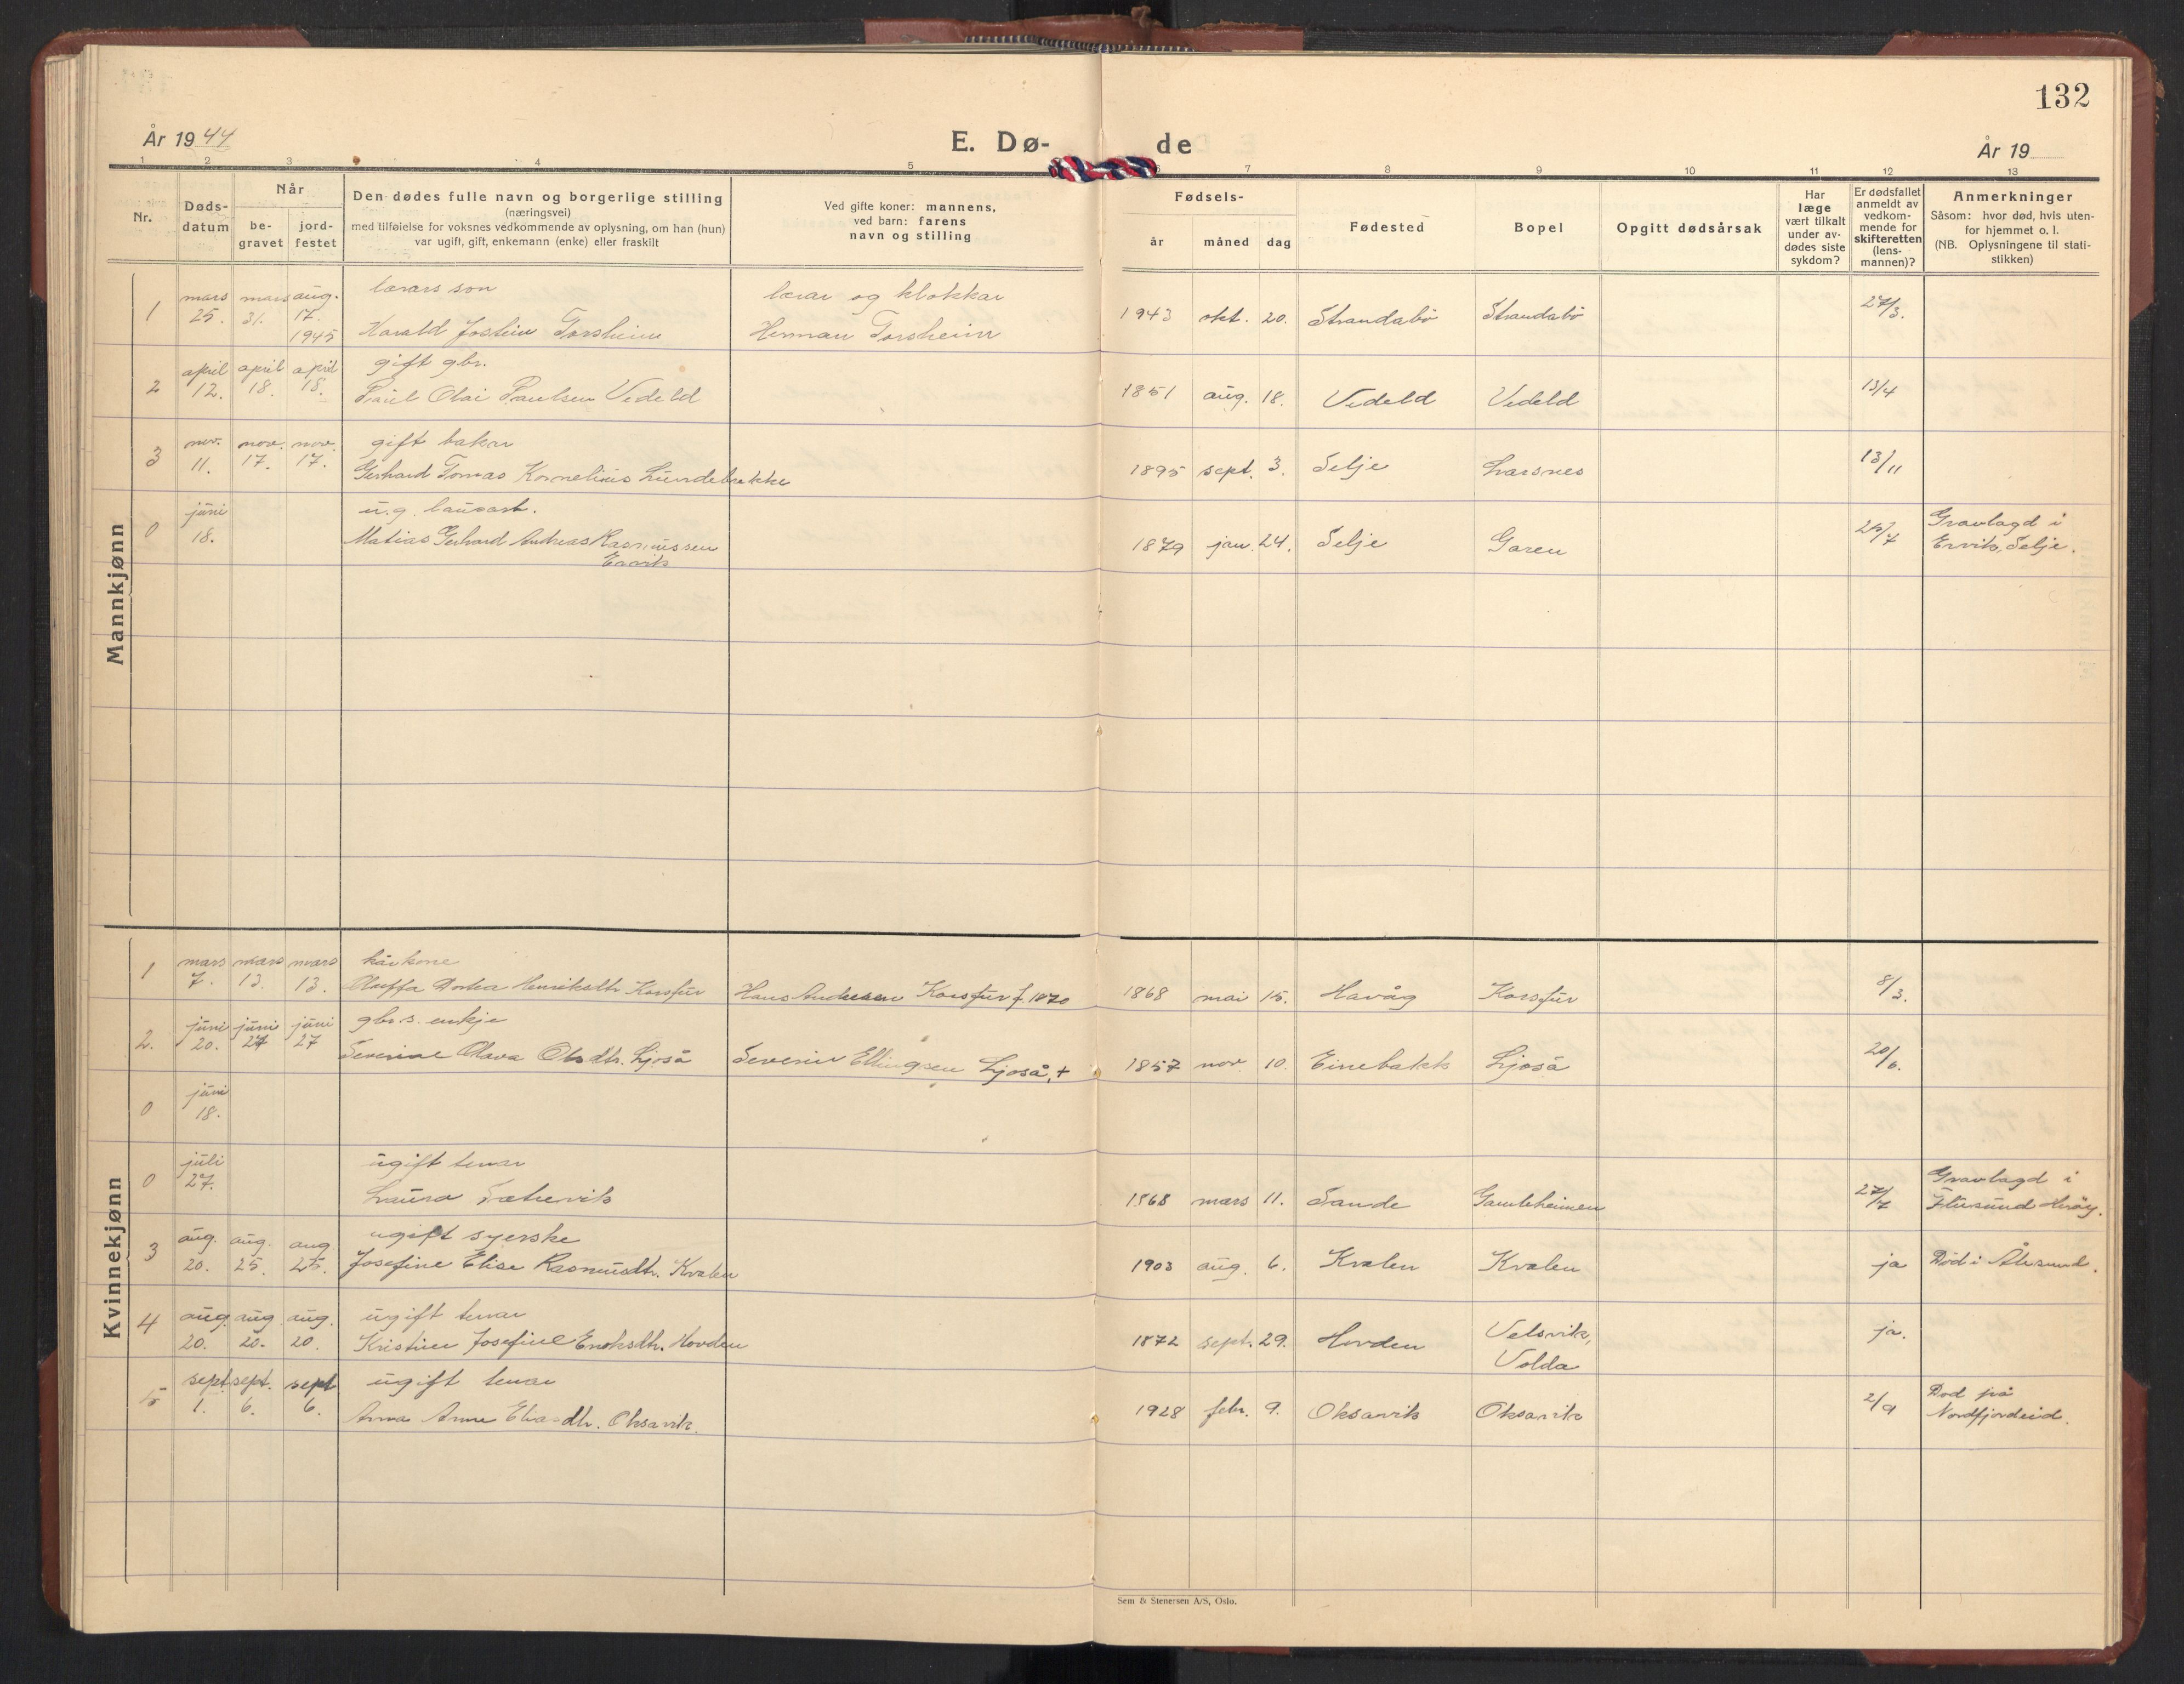 132
År 1944
E. Dø-
de
År 19
1 2 3 4 5 6 7 8 9 10 11 12 13
Nr.
Døds-
datum
Når
be-
gravet
jord-
festet
Den dødes fulle navn og borgerlige stilling
(næringsvei)
med tilføielse for voksnes vedkommende av oplysning, om han (hun)
var ugift, gift, enkemann (enke) eller fraskilt
Ved gifte koner: mannens,
ved barn: farens
navn og stilling
Fødsels-
år
måned
dag
Fødested
Bopel
Opgitt dødsårsak
Har
læge
vært tilkalt
under av-
dødes siste
sykdom?
Er dødsfallet
anmeldt av
vedkom-
mende for
skifteretten
(lens-
mannen)?
Anmerkninger
Såsom: hvor død, hvis uten-
for hjemmet o. l.
(NB. Oplysningene til stati-
stikken)
Mannkjønn
lærars son
lærar og klokkar
1 mars 25. mars 31. aug. 17. 1945 Harald Jostein Torsheim Herman Torsheim 1943 okt. 20. Strandabø Strandabø 27/3.
gift gbr.
2 april 12. april 18. april 18. Paul Olai Paulsen Vedeld 1851 aug. 18. Vedeld Vedeld 13/4
gift bakar
3 nov. 11. nov. 17. nov. 17. Gerhard Tomas Kornelius Lundebrekke 1895 sept. 3. Selje Larsnes 13/11
u.g. lausarb.
0 juni 18. Matias Gerhard Andreas Rasmussen
Ervik
1879 jan. 24. Selje Garen
Gravlagd i
Ervik, Selje.
Kvinnekjønn
kårkone
1 mars 7. mars 13. mars 13. Oluffa Dortea Henriksdtr. Korsfur Hans Andersen Korsfur f. 1870 1868 mai 15. Havåg Korsfur 8/3.
gbr.s enkje
2. juni 20. juni 27 juni 27 Severine Olava Olsdtr. Ljoså Severin Ellingsen Ljoså, + 1857 nov. 10. Einebakk Ljoså 20/6.
0 juni 18.
ugift tenar
0 juli 27. Laura Sætrevik 1868 mars 11. Sande Gamleheimen 27/7
Gravlagd i
Herøy.
ugift syerske
3 aug. 20. aug. 25. aug 25. Josefine Elise Rasmusdtr. Kvalen 1903 aug. 6. Kvalen Kvalen ja Død i Ålesund.
ugift tenar
4 aug. 20. aug. 20. aug. 20. Kristine Josefine Enoksdtr. Hovden 1872 sept. 29. Hovden Velsvik,
Volda
ja.
ugift tenar
5 sept. 1. sept. 6. sept 6. Anna Anne Eliasdtr. Oksavik. 1928 febr. 9. Oksavik Oksavik 2/9
Død på
Nordfjordeid.
Sem & Stenersen A/S, Oslo.